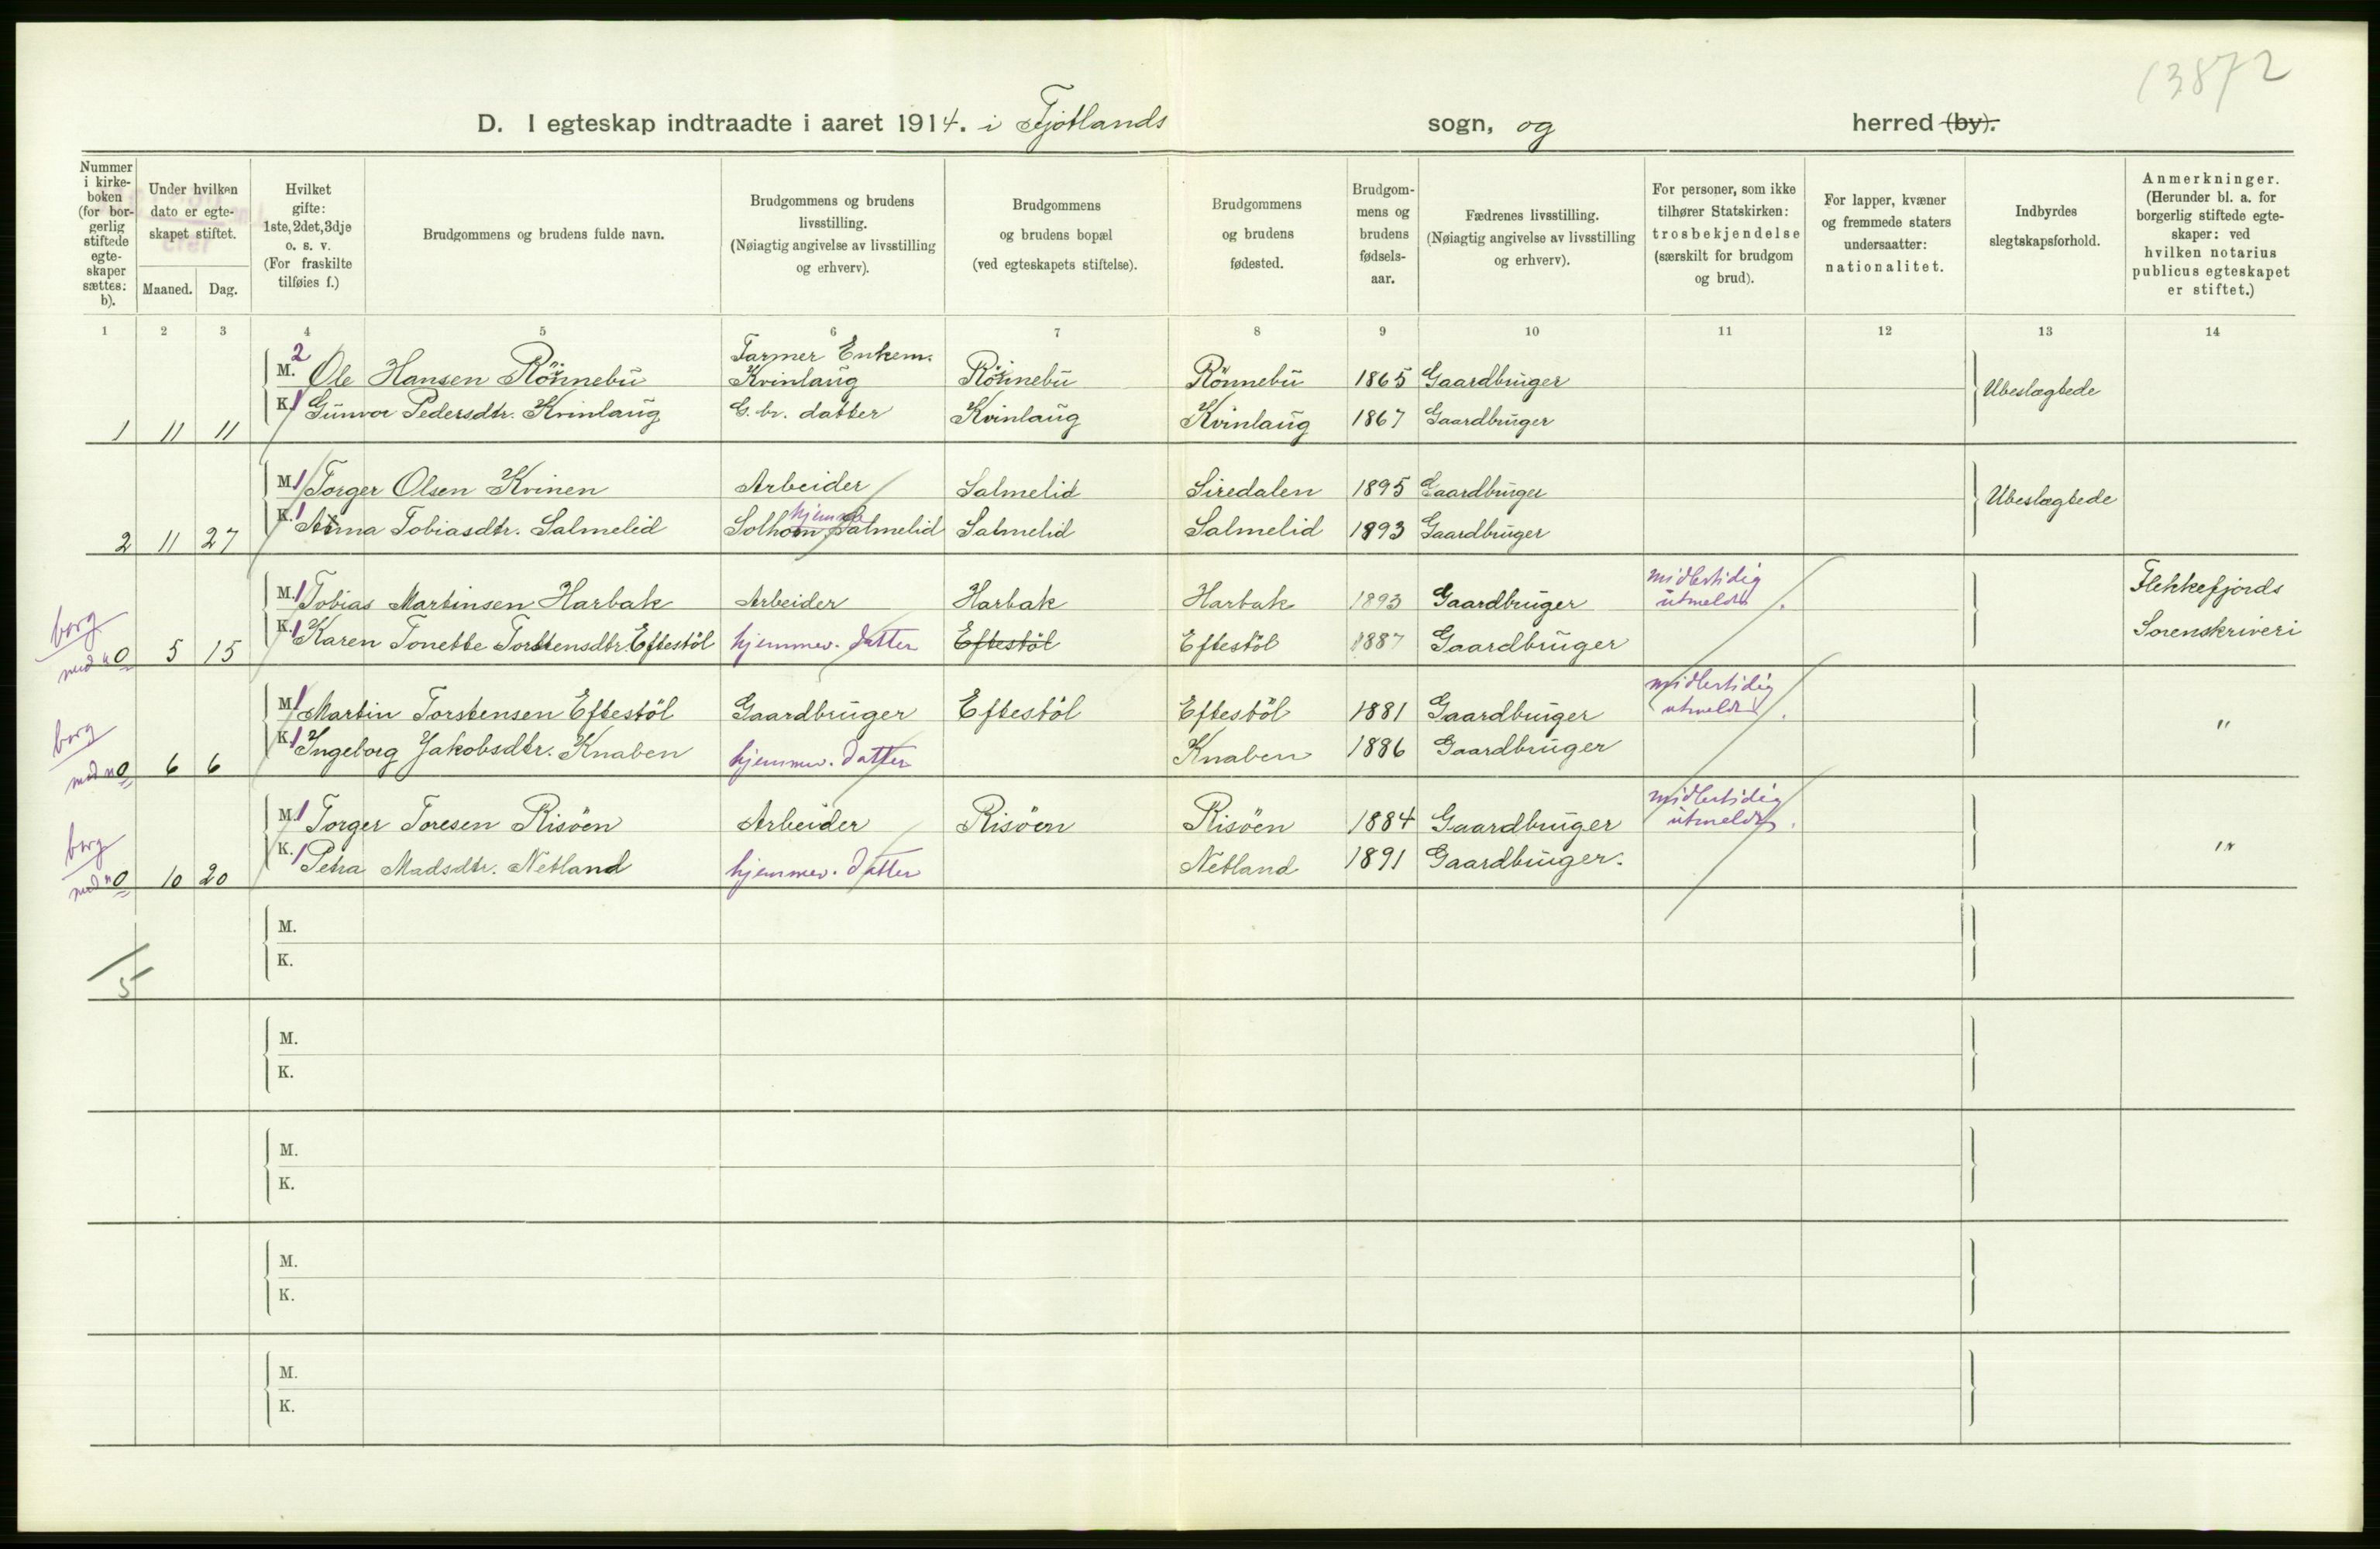 13872
D. I egteskap indtraadte i aaret 1914. i Fjotlands sogn, og herred (by).
Nummer i kirke-boken (for bor-gerlig stiftede egte-skaper sættes: b).
Under hvilken dato er egte-skapet stiftet.
Maaned. Dag.
Hvilket gifte: 1ste, 2det, 3dje o. s. v. (For fraskilte tilføies f.)
Brudgommens og brudens fulde navn.
Brudgommens og brudens livsstilling. (Nøiagtig angivelse av livsstilling og erhverv).
Brudgommens og brudens bopæl (ved egteskapets stiftelse).
Brudgommens og brudens fødested.
Brudgom-mens og brudens fødsels-aar.
Fædrenes livsstilling. (Nøiagtig angivelse av livsstilling og erhverv).
For personer, som ikke tilhører Statskirken: trosbekjendelse (særskilt for brudgom og brud).
For lapper, kvæner og fremmede staters undersaatter: nationalitet.
Indbyrdes slegtskapsforhold.
Anmerkninger. (Herunder bl. a. for borgerlig stiftede egte-skaper: ved hvilken notarius publicus egteskapet er stiftet.)
1 2 3 4 5 6 7 8 9 10 11 12 13 14
Farmer Enkem.
M. 2 Ole Hansen Rönnebu Kvinlaug Rönnebu Rönnebu 1865 Gaardbruger Ubeslegtede
K. 1 Gunvor Pedersdtr. Kvinlaug G. br. datter Kvinlaug Kvinlaug 1867 Gaardbruger
1 11 11
M. 1 Torger Olsen Kvinen Arbeider Salmelid Siredalen 1895 Gaardbruger Ubeslegtede
K. 1 Anna Tobiasdtr. Salmelid Solhom, Salmelid hjemme Salmelid Salmelid 1893 Gaardbruger
2 11 27
M. 1 Tobias Martinsen Harbak Arbeider Harbak Harbak 1893 Gaardbruger midlertidig utmeldt. Flekkefjords
borg
K. 1 Karen Tonette Torstensdtr Eftestöl hjemmev. datter Eftestöl Eftestöl 1887 Gaardbruger Sorenskriveri
0 5 15
M. 1 Martin Torstensen Eftestöl Gaardbruger Eftestöl Eftestöl 1881 Gaardbruger midlertidig utmeldt. "
borg
K. 1 Ingeborg Jakobsdtr. Knaben hjemmev. datter Knaben 1886 Gaardbruger
0 6 6
M. 1 Torger Toresen Risöen Arbeider Risöen Risöen 1884 Gaardbruger midlertidig utmeldt. "
borg
K. 1 Petra Madsdtr. Netland hjemmev. datter Netland 1891 Gaardbruger.
0 10 20
M.
K.
5
M.
K.
M.
K.
M.
K.
M.
K.